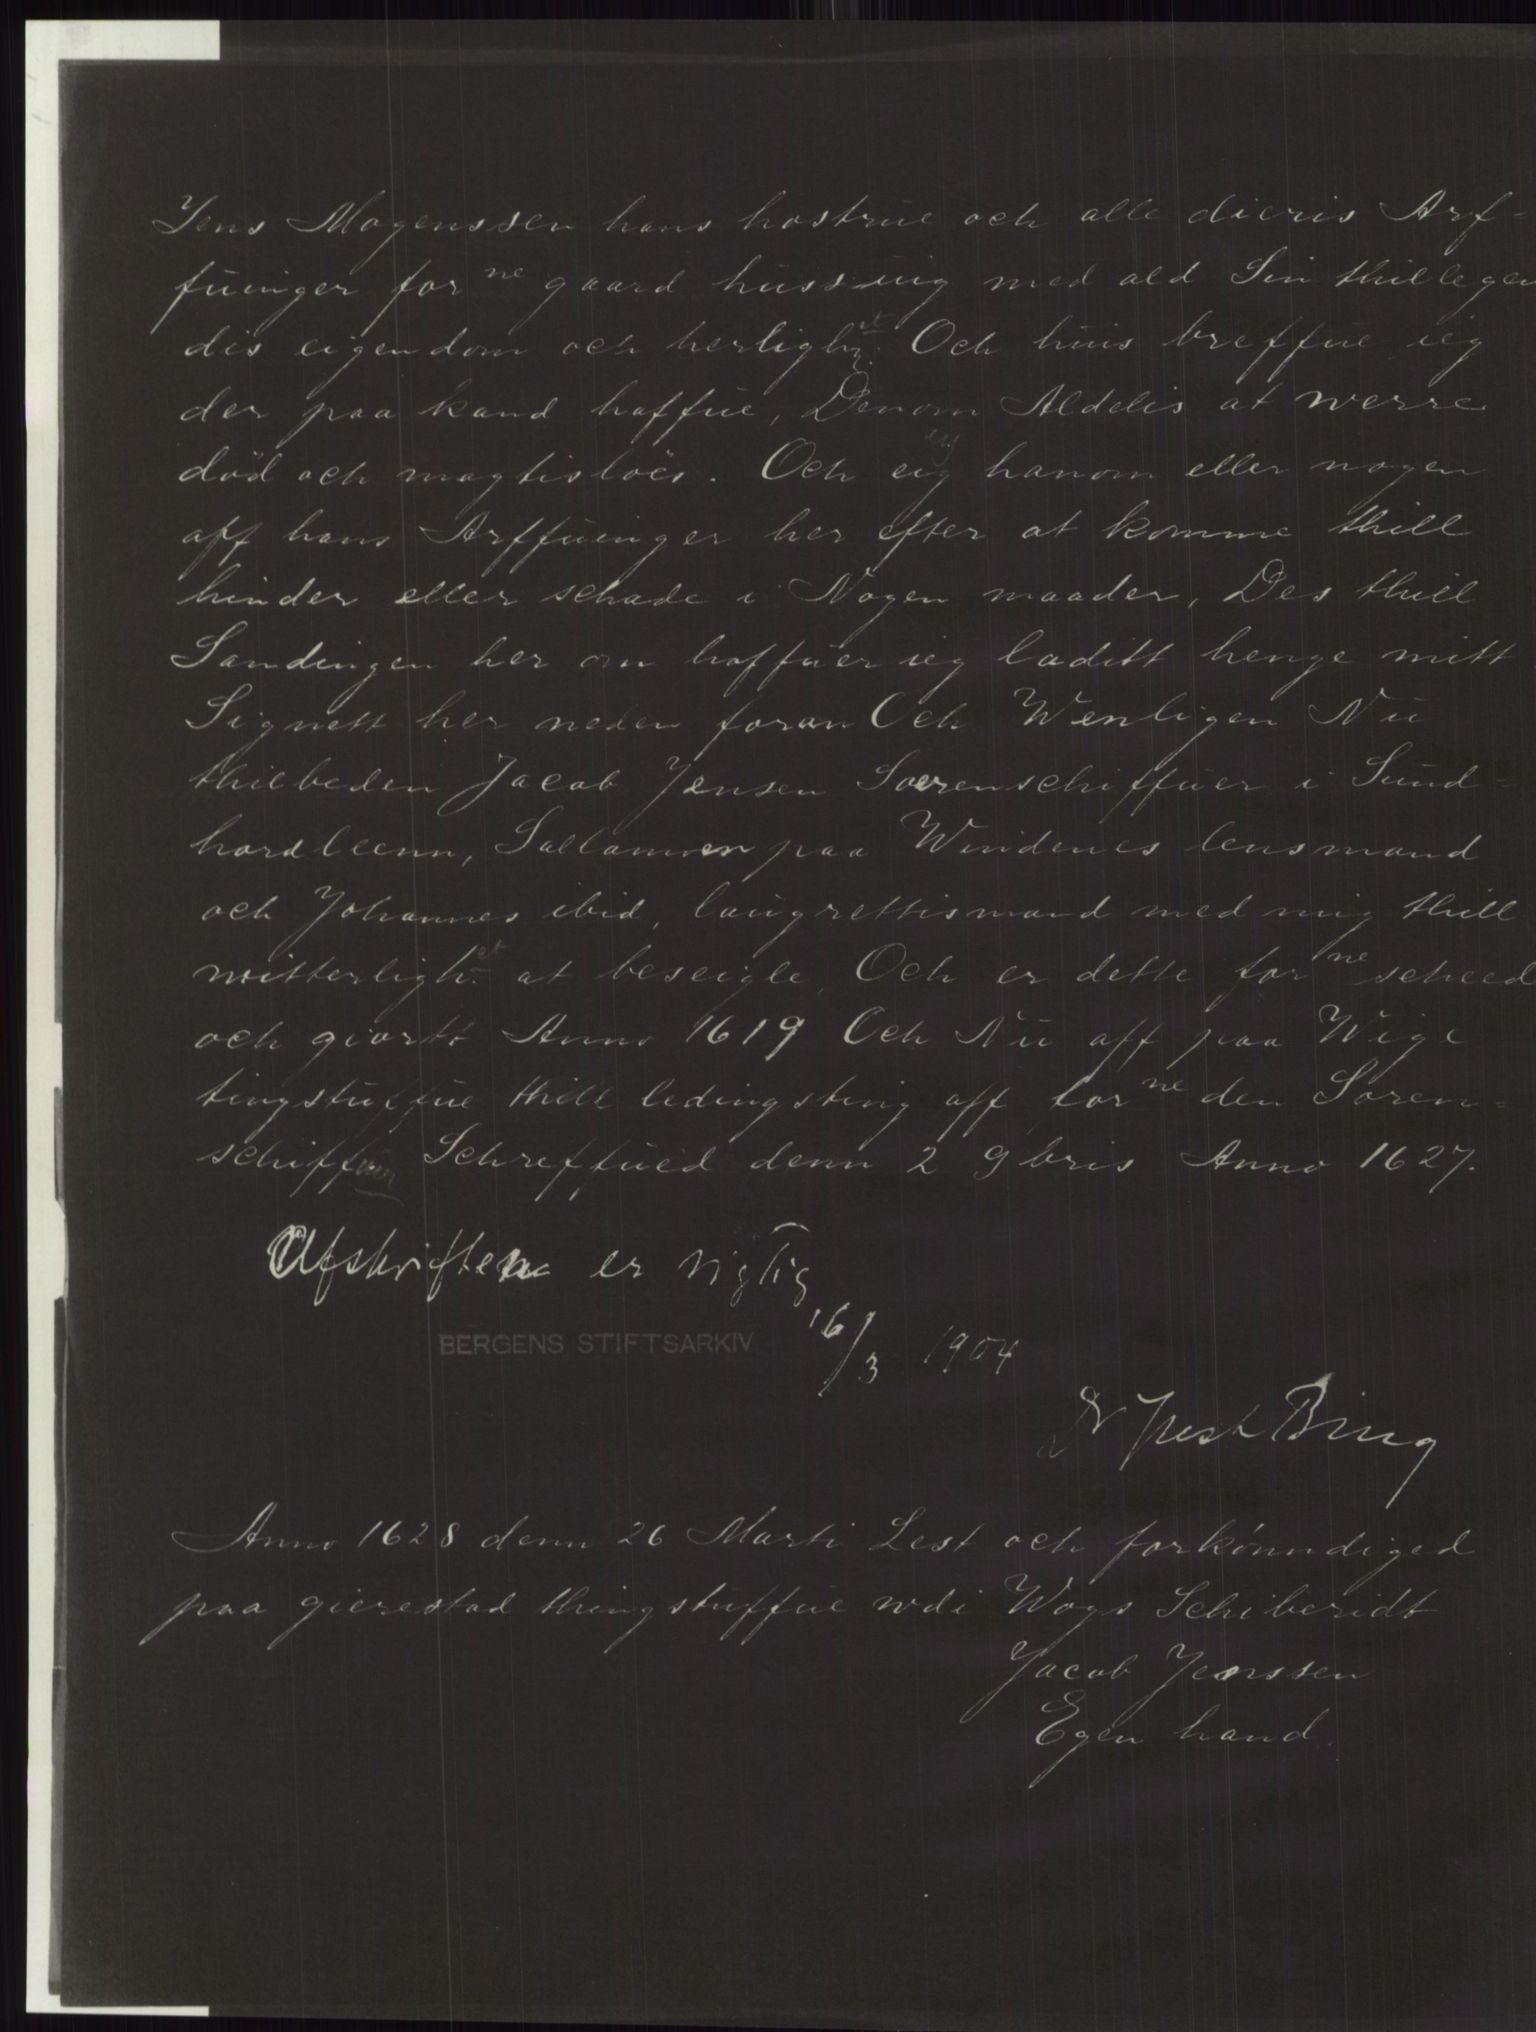 Jens Mogenssen hans hostrue och alle dieris Arf-
fuinger for ne gaard hussuig med ald Sin thillegen
dis eigendom och herligh et. Och huis breffue ieg
der paa kand haffue, Denom Aldelis at werre
död och magtislöes. Och eig hanom eller nogen
aff hans Arffuinger her efter at komme thill
hinder eller schade i Nogen maader, Des thill
Sandingen her om haffuer ieg laditt henge mitt
Signett her neden foran Och Wenligen Nu
thilbeden Jacob Jensen Soerenschiffuer i Sund=
hordleenn, Sallamon paa Windenes lensmand
och Johannes ibid, laugrettismand med mig thill
witterligh et at beseigle, Och er dette for ne scheed
och giortt Anno 1619 Och Nu aff paa Wige
tingstuffue thill ledingsting aff for ne den Soren=
schiffuer Schreffued denn 2 9bris Anno 1627.
Afskriften er rigtig
BERGENS STIFTSARKIV 16/3 1904
Dr Just Bing
Anno 1628 denn 26 Marti Lest och forkönndiged
paa gierestad thingstuffue wdi Wogs Schiberidt
Jacob Jenssen
Egen hand.